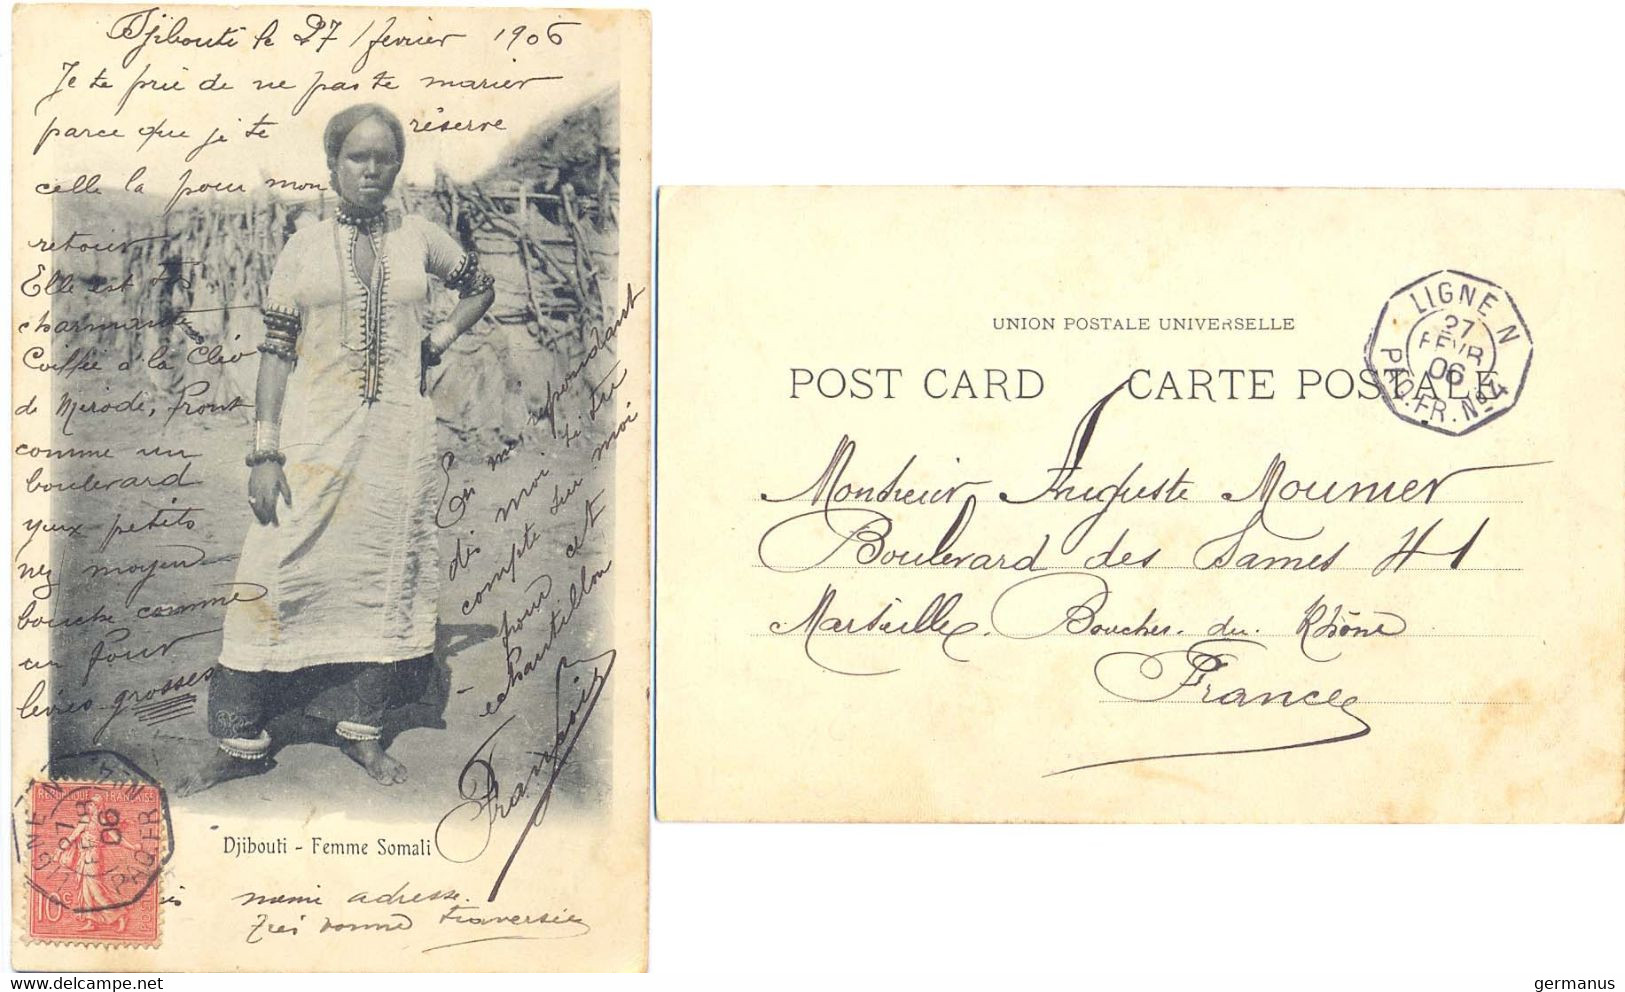 Djibouti le 27 février 1906
Je te prie de ne pas te marier
parce que je te réserve
celle la pour mon
retour
Elle est très
charmante
Coiffée à la Cléo
de Mérode, front
comme un
boulevard
yeux petits
nez moyen
bouche comme
un four
lèvres grosses
En me répondant
dis moi si tu
compte sur moi
pour cet
echantillon
François
Djibouti - Femme Somali
même adresse.
Très bonne traversée
REPUBLIQUE FRANÇAISE
10c
POSTES
LIGNE N
27
FEVR
06
PAQ. FR. No 4
UNION POSTALE UNIVERSELLE
POST CARD CARTE POSTALE
LIGNE N
27
FEVR
06
PAQ. FR. No 4
Monsieur Auguste Mounier
Boulevard des Dames 41
Marseille. Bouches. du. Rhône
France
germanus